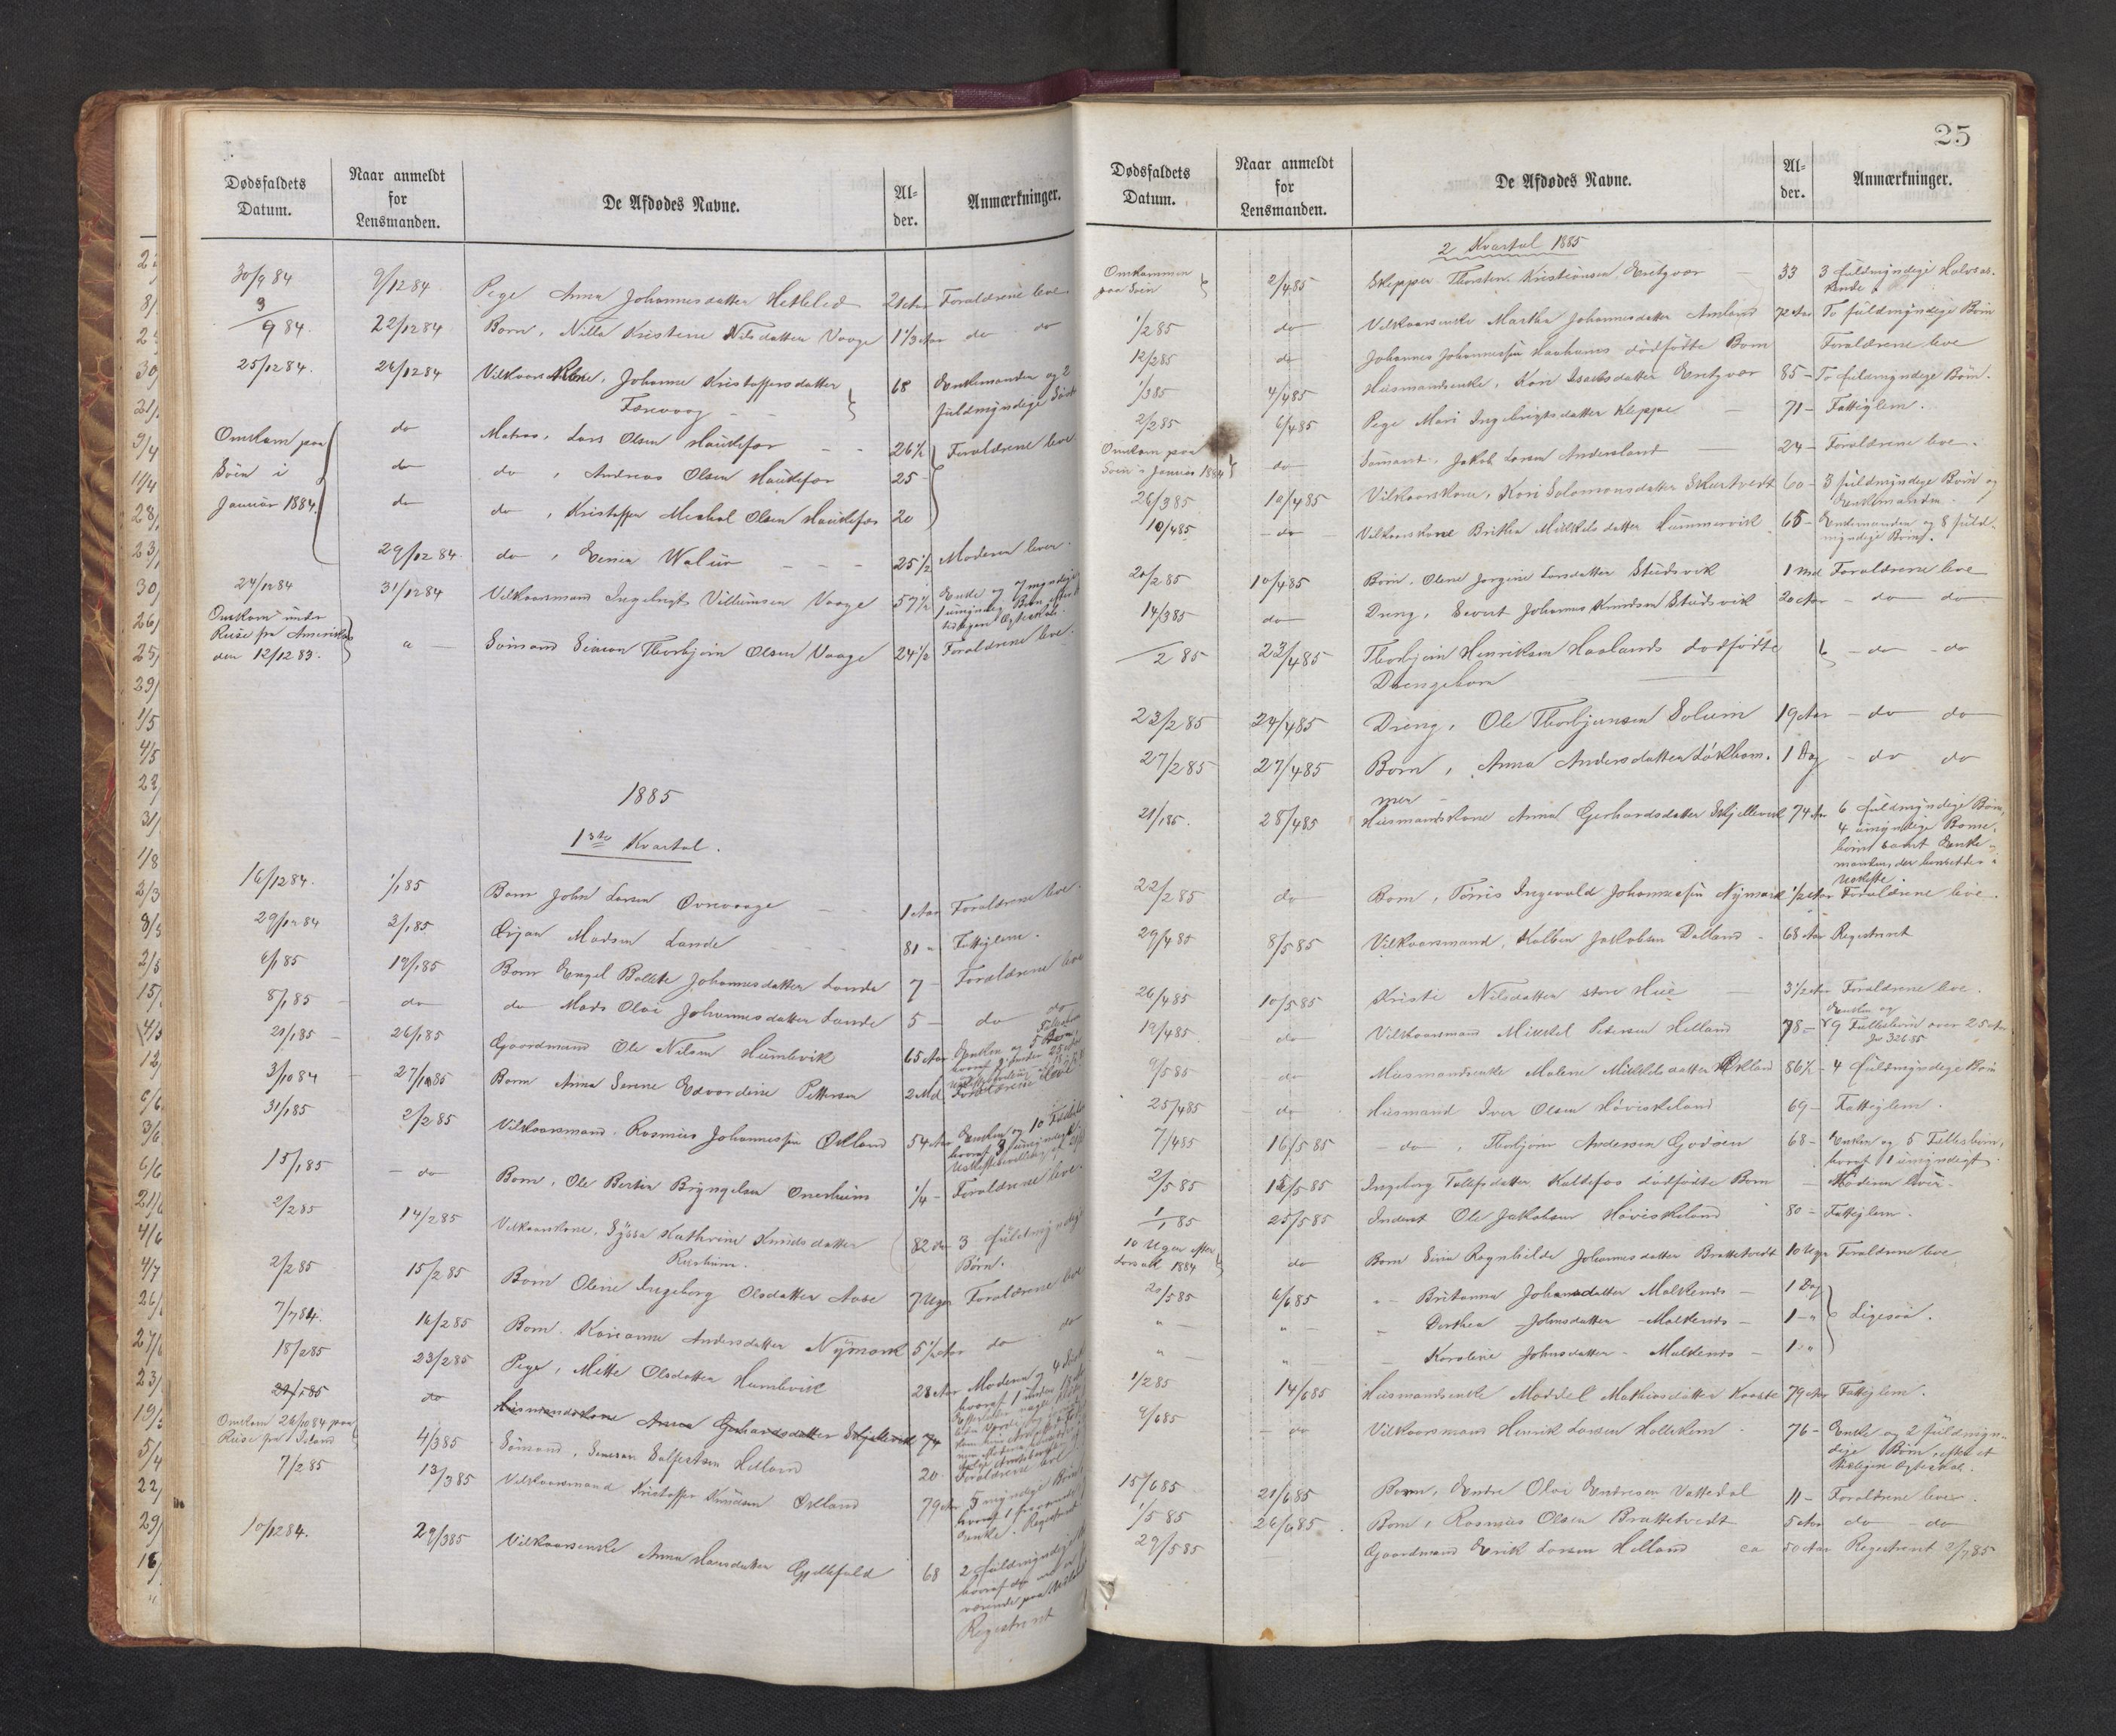 Dødsfaldets Datum.
Naar anmeldt for Lensmanden.
De Afdødes Navne.
Al-
der.
Anmærkninger.
30/9 84 9/12 84 Pige Anna Johannesdatter 21 Aar Forældrene leve
3/9 84. 22/12 84 Barn, Nilla Kristene Nilsdatter Vaage 1 1/3 Aar do do
25/12 84. 26/12 84 Vilkaarskone, Johanna Kristoffersdatter 68 Enkemanden og 2
fuldmyndige
Omkom paa do Matros, Lars Olsen Haukefær 26 1/2 Forældrene leve
Søen i do do, Andreas Olsen Haukefær 25 -
Januar 1884 do do, Kristoffer Mechal Olsen Haukefær 20
29/12 84. do, 25 1/2 Moderen lever.
24/12 84 31/12 84 Vilkaarsmand Ingebrigt Villumsen Vaage 57 1/2 Enke og 7 myndige
1 umyndig Barn
Omkom under
Reise fra Amerika
den 12/12 83. Sømand Simon Thorbjørn Olsen Vaage 24 1/2 Forældrene leve.
1885
1ste Kvartal.
16/12 84. 1/1 85 Barn John Larsen 1 Aar Forældrene leve.
29/12 84 3/1 85 Madsen Lande 81 " Fattiglem.
6/1 85 19/1 85 Barn Engel Bollete Johannesdatter Lande 7 - Forældrene leve
8/1 85 - do do Mads Olai Johannesdatter Lande 5 - do do
21/1 85 - 26/1 85 Gaardmand Ole Nilsen Humlevik 65 Aar Enken og 5 Børn
3/10 84 27/1 85 Barn Anna Serene Edvardine Pettersen 2 Md. Forældrene leve
31/1 85 2/2 85 Vilkaarsmand Rasmus Johannessen Økland 54 Aar Enken og 10
hvoraf 3 umyndige
15/1 85 - do Barn, Ole Bertin Bryngelsen 1/4 - Forældrene leve.
2/2 85 14/2 85 Vilkaarskone, Kathrine Knudsdatter 82 Aar 3 fuldmyndige
Børn.
2/2 85 15/2 85 Barn Olene Ingeborg Olsdatter Aase 7 Uger Forældrene leve
7/7 84. 16/2 85 Barn. Karianne Andersdatter Nymark 5 1/2 Aar do do
18/2 85 23/2 85 Pige, Mette Olsdatter Humlevik 28 Aar Moderen og 4
21/1 85 do Husmandskone Anna Gerhardsdatter Skjellevik 74
Omkom 26/10 84 paa
Reise fra Island 4/3 85 Sømand, Salfestsen Helland 20. Forældrene leve
7/2 85 13/3 85 Vilkaarsmand Kristoffer Knudsen Økland 79 Aar 5 myndige Børn,
Enke. Registreret
10/12 84. 29/3 85 Vilkaarsenke Anna Hansdatter 68 2 fuldmyndige
Registreret
25
Dødsfaldets Datum.
Naar anmeldt for Lensmanden.
De Afdødes Navne.
Al-
der.
Anmærkninger.
2 Kvartal 1885
Omkommen
paa Søen 2/4 85 Skipper Thorsten Kristiansen Eretgvær 33 3 fuldmyndige Halvsøs-
kende
1/2 85 do Vilkaarsenke Martha Johannesdatter Amland 72 Aar To fuldmyndige Børn
12/2 85 do Johannes Johannessen dødfødte Barn Forældrene leve
1/3 85 4/4 85 Husmandsenke, Kari Isaksdatter Eretgvær 85 - To fuldmyndige Børn.
2/2 85 6/4 85 Pige Mari Ingebrigtsdatter Kleppe 71 - Fattiglem.
Omkom paa
Søen i Januar 1884 do Sømand, Jakob Larsen Andersland 24 - Forældrene leve.
26/3 85 10/4 85 Vilkaarskone, Kari Salomonsdatter Skartvedt 60 - 3 fuldmyndige Børn og
Enkemanden.
10/4 85 - do - Vilkaarskone Britha Mikkelsdatter Hummervik 65 - Enkemanden og 8 fuld-
myndige Børn.
20/2 85 10/4 85 Barn. Olene Jørgine Larsdatter Stuksvik 1 Md Forældrene leve
14/3 85 do Dreng, Severt Johannes Knudsen Stuksvik 20 Aar - do do
/2 85 23/4 85 Thorbjørn Henriksen Haalands dødfødte - do - do
Drengebarn
23/2 85 24/4 85 Dreng, Ole Thorbjørnsen Solum 19 Aar - do do
27/2 85 27/4 85 Barn, Anna Andersdatter Løkham- 1 Dag - do do
mer
21/1 85. 28/4 85 Husmandskone Anna Gerhardsdatter Skjellevik 74 Aar 6 fuldmyndige Børn,
4 umyndige Barne-
børn samt Enke-
manden, der hensidder i
Uskifte.
22/2 85 do Barn, Tørris Ingevald Johannessen Nymark 1/2 Aar Forældrene leve
29/4 85 8/5 85 Vilkaarsmand, Kolben Jakobsen Dalland 68 Aar Registreret
26/4 85 10/5 85 Kristi Nilsdatter store Hue 3 1/2 Aar Forældrene leve.
19/4 85. do Vilkaarsmand Mikkel Petersen Helland 78 - Enken og
9 Fællesbørn over 25 Aar
Jr 326 85
9/5 85 do Husmandsenke Malene Mikkelsdatter Økland 86 1/2 - 4 fuldmyndige Børn
25/4 85 - do Husmand Iver Olsen Høviskeland 69 - Fattiglem.
7/4 85 16/5 85 - do, Thorbjørn Andersen Godøen 68 - Enken og 5 Fællesbørn,
hvoraf 1 umyndigt.
2/5 85 18/5 85 Ingeborg Tollefsdatter Kaldefos dødfødte Barn - Moderen lever.
1/1 85 25/5 85 Inderst Ole Jakobsen Høviskeland 80 - Fattiglem.
10 Uger efter
1884 do Barn Siri Ragnhilde Johannesdatter Brattetvedt 10 Uger Forældrene leve
20/5 85 6/6 85 " - Britanna Johansdatter Malkenes - 1 Dag
" " - Dorthea Johnsdatter - Malkenes - 1 - " Ligesaa.
" " - Karoline Johnsdatter - Malkenes - 1 - "
1/2 85 14/6 85 Husmandsenke Maddel Mathiasdatter 79 Aar Fattiglem.
9/6 85 - do Vilkaarsmand Henrik Larsen Hollekim 76 - Enke og 2 fuldmyn-
dige Børn, efter et
tidligere Ægteskab.
15/6 85 21/6 85 Barn, Endre Olai Endresen Vattedal 11 - Forældrene lever.
1/5 85 26/6 85. Barn, Rasmus Olsen Brattetvedt 5 Aar do - do
29/5 85 Gaardmand Erik Larsen Helland ca 50 Aar Registreret 2/7 85